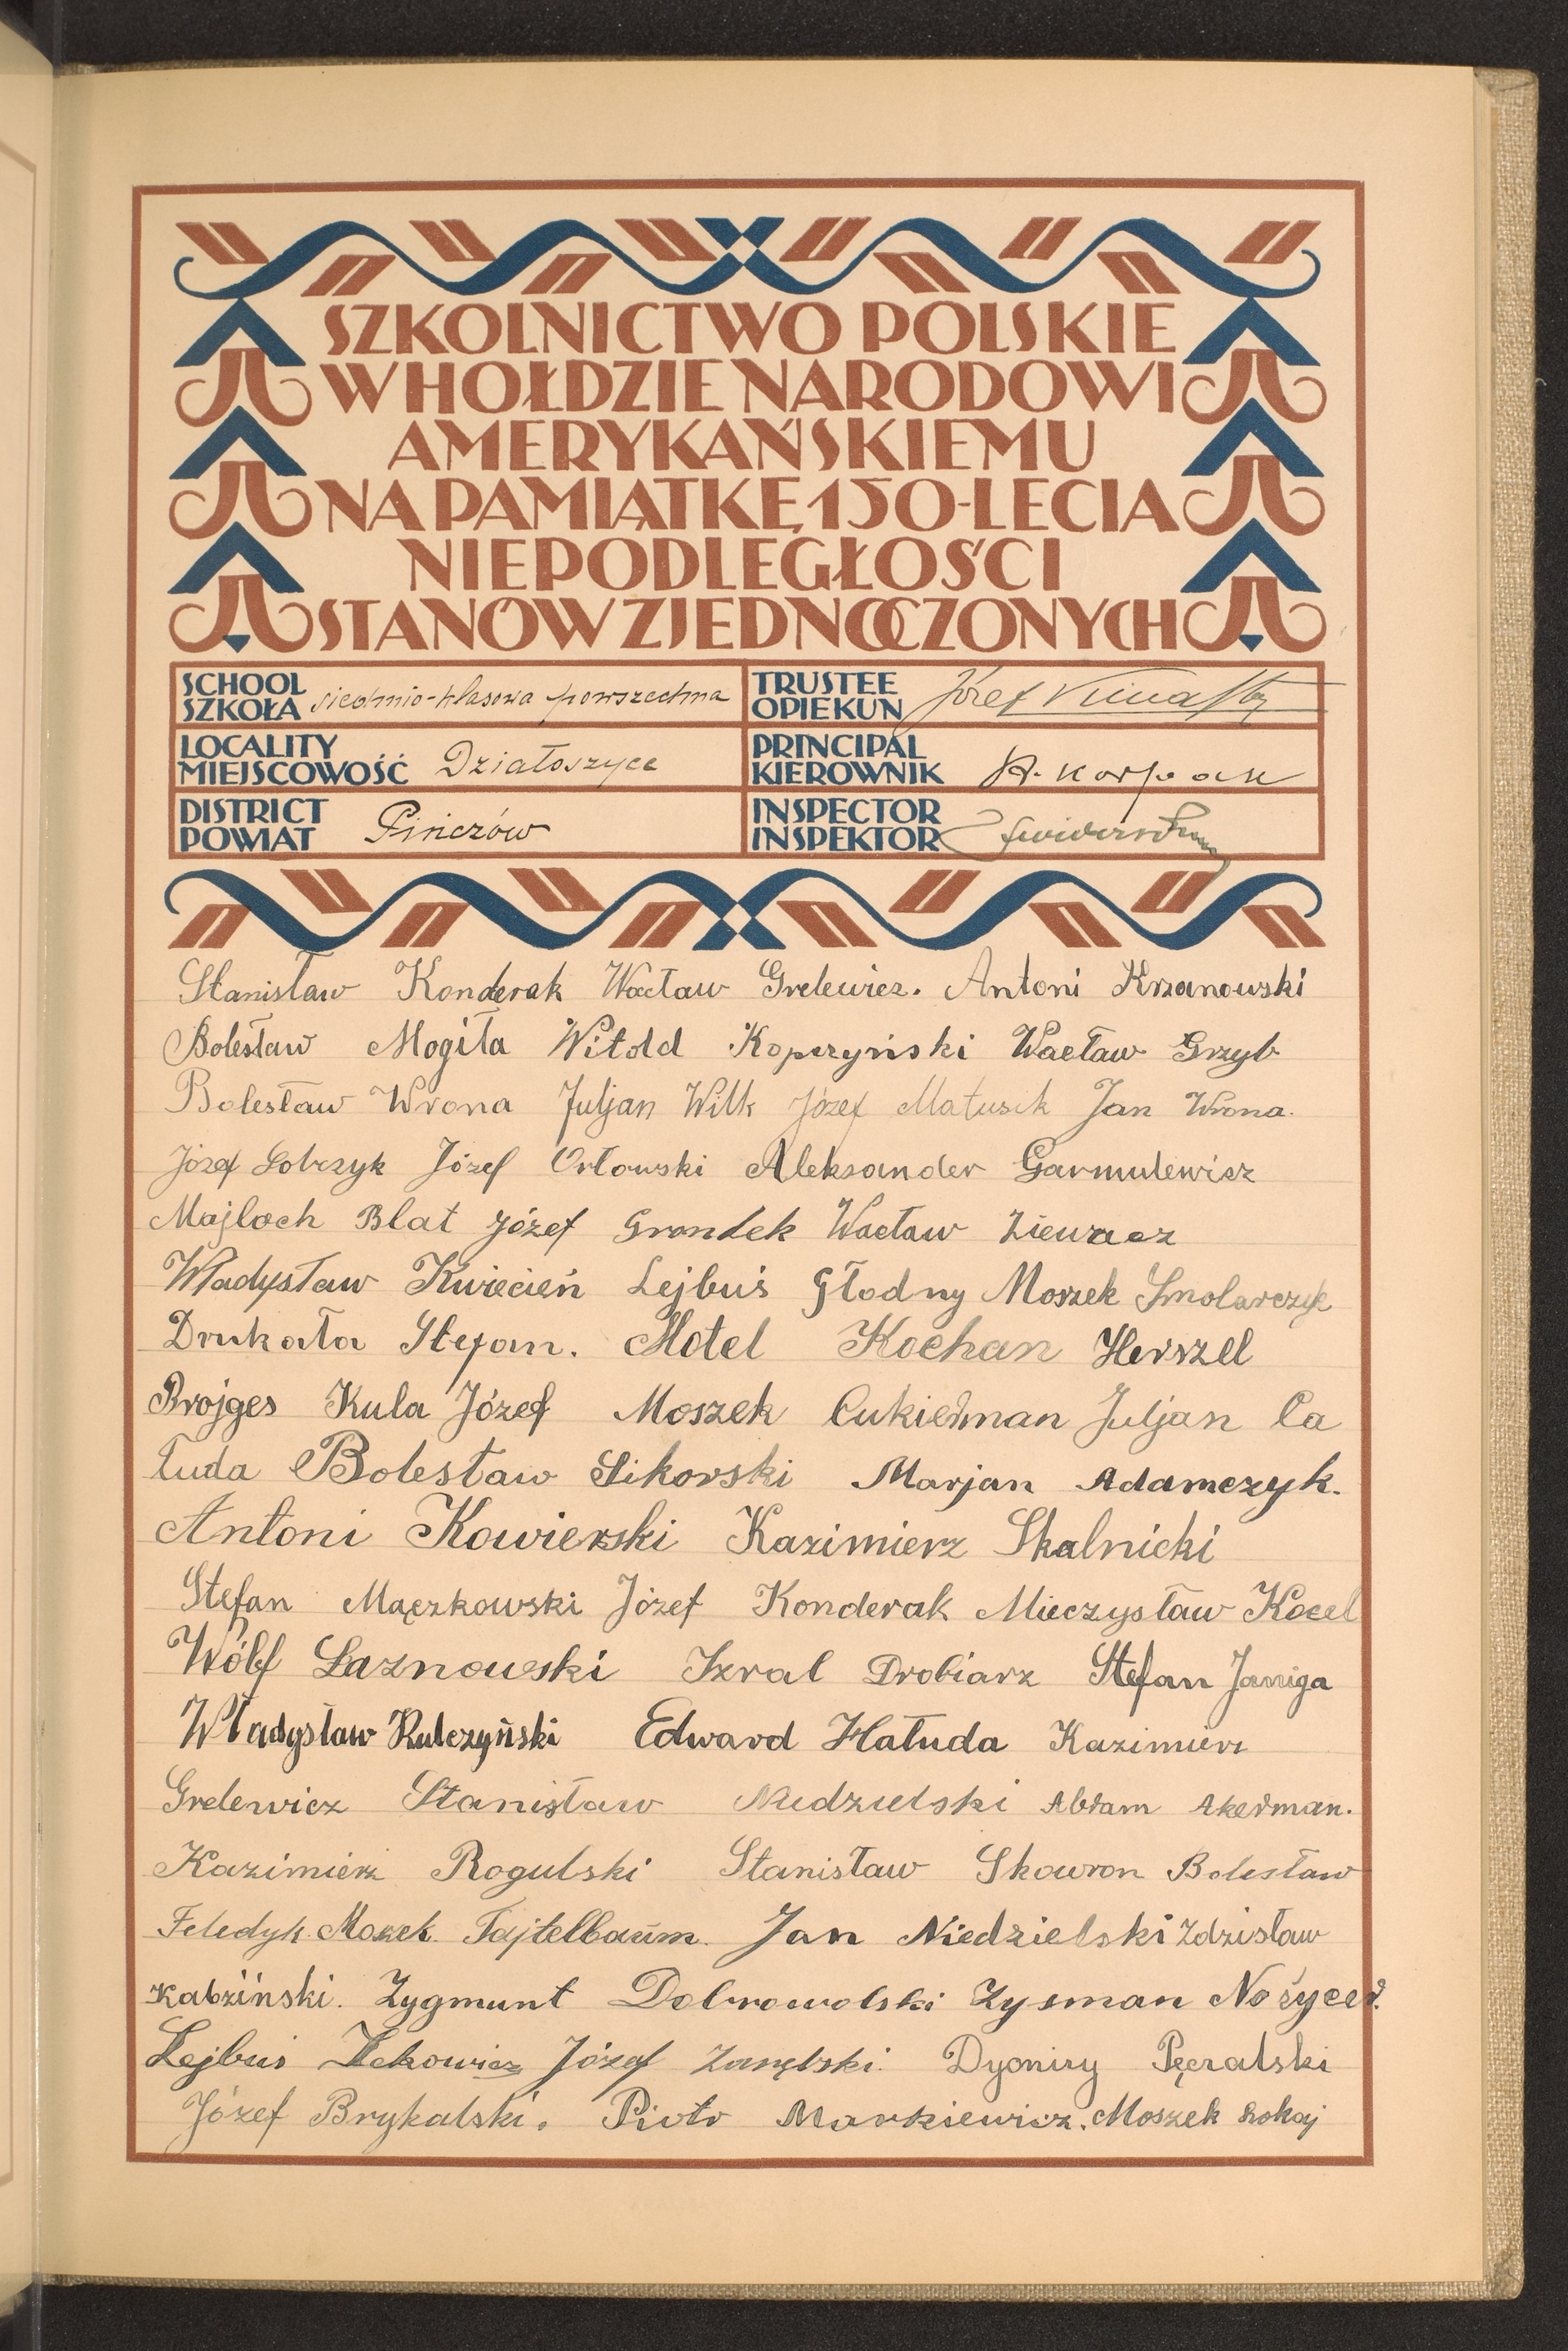 SZKOLNICTWO POLSKIE
W HOŁDZIE NARODOWI
AMERYKAŃSKIEMU
NA PAMIĄTKĘ 150-LECIA
NIEPODLEGŁOŚCI
STANÓW ZJEDNOCZONYCH
SCHOOL
SZKOŁA siedmio-klasowa powszechna
TRUSTEE
OPIEKUN Józef
LOCALITY
MIEJSCOWOŚĆ Działoszyce
PRINCIPAL
KIEROWNIK
DISTRICT
POWIAT Pińczów
INSPECTOR
INSPEKTOR
Stanisław Konderak Wacław Grelewicz. Antoni Krzanowski
Bolesław Mogiła Witold Kopczyński Wacław Grzyb
Bolesław Wrona Juljan Wilk Józef Matusik Jan Wrona.
Józef Sobczyk Józef Orłowski Aleksander Garmulewicz
Majloch Blat Józef Grondek Wacław
Władysław Kwiecień Lejbuś Głodny Moszek Smolarczyk
Drukała Stefan. Motel Kochan Herszel
Brojges Kula Józef Moszek Cukierman Juljan Ca
łuda Bolesław Sikorski Marjan Adamczyk.
Antoni Kowierski Kazimierz Skalnicki
Stefan Mączkowski Józef Konderak Mieczysław Kocel
Wólf Łaznowski Izral Drobiarz Stefan Janiga
Władysław Kulczyński Edward Hałuda Kazimierz
Grelewicz Stanisław Niedzielski Abram Akerman.
Kazimierz Rogulski Stanisław Skowron Bolesław
Feledyk. Moszek. Tajtelbaum. Jan Niedzielski Zdzisław
Kabziński. Zygmunt Dobrowolski Zysman Nożycer.
Lejbuś Józef Zarębski. Dyonizy Pęczalski
Józef Brykalski. Piotr Markiewicz. Moszek